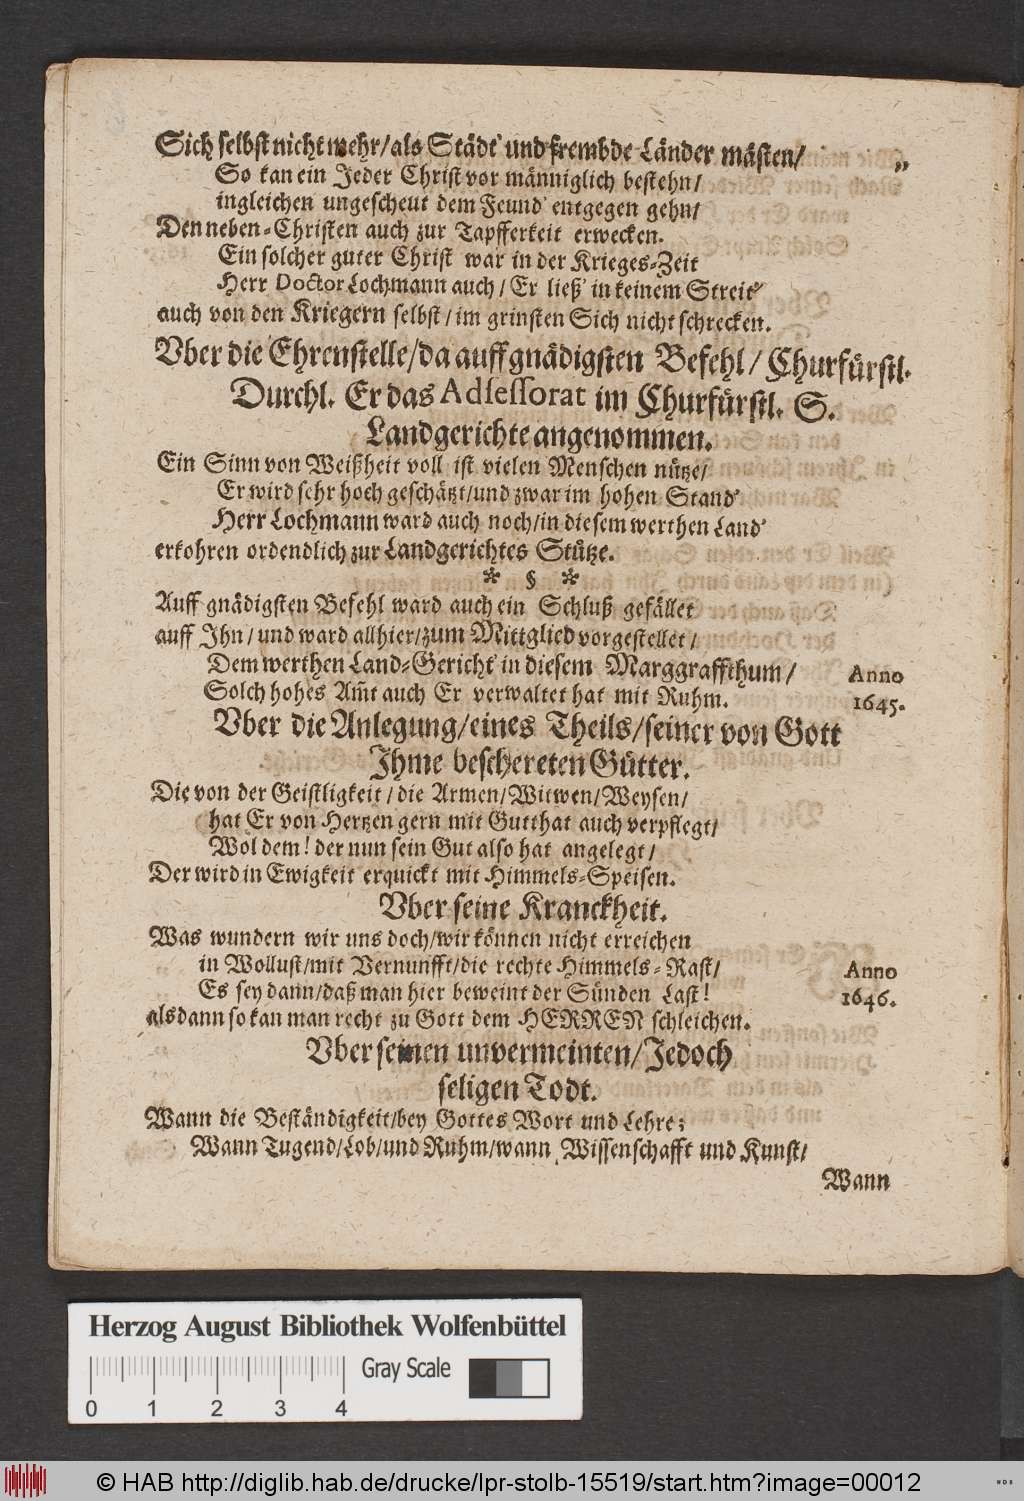 Sich selbst nicht mehr/als Städt' und frembde Länder mästen/ „
So kan ein Jeder Christ vor männiglich bestehn/
ingleichen ungescheut dem Feund' entgegen gehn/
Den neben-Christen auch zur Tapfferkeit erwecken.
Ein solcher guter Christ war in der Krieges-Zeit
Herr Doctor Lochmann auch/Er ließ' in keinem Streit'
auch von den Kriegern selbst/im grinsten Sich nicht schrecken.
Vber die Ehrenstelle/da auff gnädigsten Befehl/Churfürstl.
Durchl. Er das Adsessorat im Churfürstl. S.
Landgerichte angenommen.
Ein Sinn von Weißheit voll ist vielen Menschen nütze/
Er wird sehr hoch geschätzt/und zwar im hohen Stand'
Herr Lochmann ward auch noch/in diesem werthen Land'
erkohren ordendlich zur Landgerichtes Stütze.
* § *
Auff gnädigsten Befehl ward auch ein Schluß gefället
auff Ihn/und ward allhier/zum Mittglied vorgestellet/
Dem werthen Land-Gericht' in diesem Marggraffthum/
Solch hohes Am̃t auch Er verwaltet hat mit Ruhm.
Anno
1645.
Vber die Anlegung/eines Theils/seiner von Gott
Ihme beschereten Gütter.
Die von der Geistligkeit/die Armen/Witwen/Weysen/
hat Er von Hertzen gern mit Gutthat auch verpflegt/
Wol dem! der nun sein Gut also hat angelegt/
Der wird in Ewigkeit erquickt mit Himmels-Speisen.
Vber seine Kranckheit.
Was wundern wir uns doch/wir können nicht erreichen
in Wollust/mit Vernunfft/die rechte Himmels-Rast/
Es sey dann/daß man hier beweint der Sünden Last!
alsdann so kan man recht zu Gott dem HERREN schleichen.
Anno
1646.
Vber seinen unvermeinten/Jedoch
seligen Todt.
Wann die Beständigkeit/bey Gottes Wort und Lehre;
Wann Tugend/Lob/und Ruhm/wann Wissenschafft und Kunst/
Wann
Herzog August Bibliothek Wolfenbüttel
Gray Scale
0 1 2 3 4
© HAB http://diglib.hab.de/drucke/lpr-stolb-15519/start.htm?image=00012